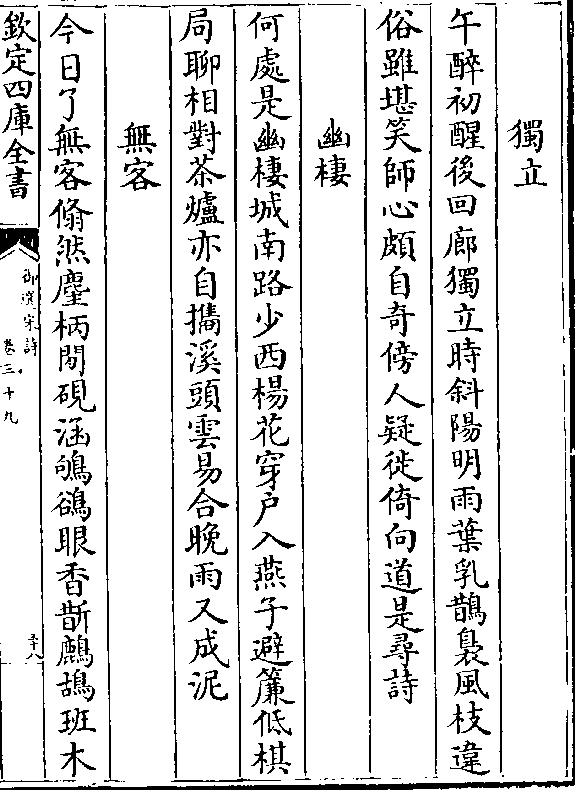 獨立
午醉初醒後回廊獨立時斜陽明雨葉乳鵲裊風枝違
俗雖堪笑師心頗自奇傍人疑徙倚向道是尋詩
幽棲
何處是幽棲城南路少西楊花穿户入燕子避簾低棋
局聊相對茶爐亦自攜溪頭雲易合晚雨又成泥
無客
今日了無客翛然麈柄閒硯涵鴝鵒眼香斮鷓鴣班木
欽定四庫全書
御選宋詩
卷三十九
三十八